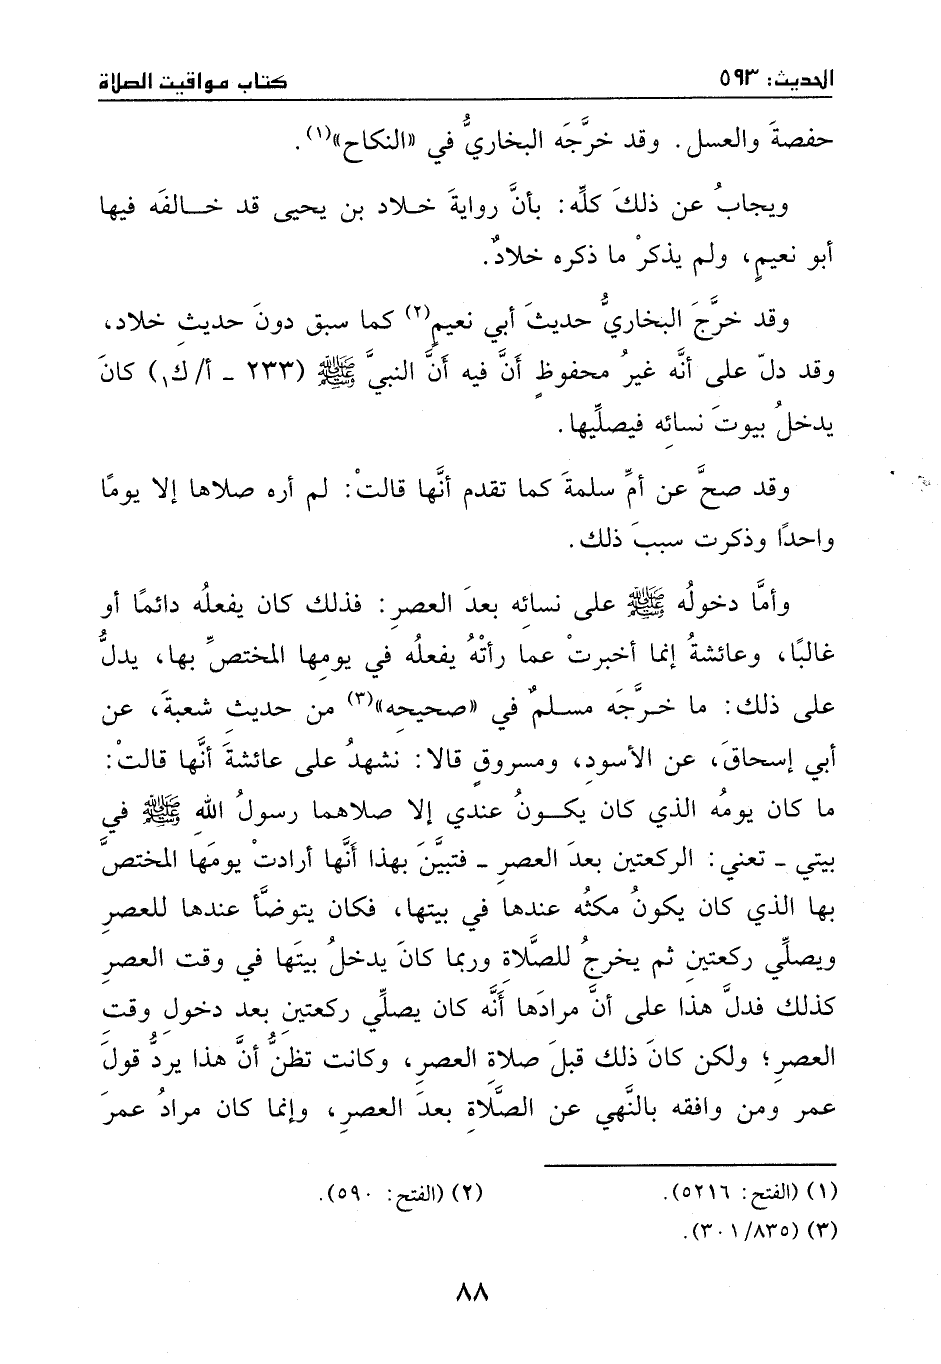 الحديث: ٥٩٣
كتاب مواقيت الصلاة
حفصةَ والعسل. وقد خرَّجَه البخاريُّ في «النكاح»(١).
ويجابُ عن ذلكَ كلِّه: بأنَّ روايةَ خلاد بن يحيى قد خالفَه فيها
أبو نعيمٍ، ولم يذكرْ ما ذكره خلادٌ.
وقد خرَّجَ البخاريُّ حديثَ أبي نعيمٍ(٢) كما سبق دونَ حديثِ خلاد،
وقد دلّ على أنَّه غيرُ محفوظٍ أنَّ فيه أنَّ النبيَّ ﷺ (٢٣٣ - أ/ ك١) كانَ
يدخلُ بيوتَ نسائِه فيصلِّيها.
وقد صحَّ عن أمِّ سلمةَ كما تقدم أنَّها قالتْ: لم أره صلاها إلا يومًا
واحدًا وذكرت سببَ ذلك.
وأمَّا دخولُه ﷺ على نسائِه بعدَ العصرِ: فذلك كان يفعلُه دائمًا أو
غالبًا، وعائشةُ إنما أخبرتْ عما رأتْهُ يفعلُه في يومِها المختصِّ بها، يدلُّ
على ذلك: ما خرَّجَه مسلمٌ في «صحيحه»(٣) من حديثِ شعبةَ، عن
أبي إسحاقَ، عن الأسودِ، ومسروقٍ قالا: نشهدُ على عائشةَ أنَّها قالتْ:
ما كان يومُه الذي كان يكونُ عندي إلا صلاهما رسولُ اللهِ ﷺ في
بيتي - تعني: الركعتين بعدَ العصرِ - فتبيَّنَ بهذا أنَّها أرادتْ يومَها المختصَّ
بها الذي كان يكونُ مكثُه عندها في بيتها، فكان يتوضَّأ عندها للعصرِ
ويصلِّي ركعتينِ ثم يخرجُ للصَّلاةِ وربما كانَ يدخلُ بيتَها في وقت العصرِ
كذلك فدلَّ هذا على أنَّ مرادَها أنَّه كان يصلِّي ركعتينِ بعد دخولِ وقتِ
العصرِ؛ ولكن كانَ ذلك قبلَ صلاةِ العصرِ، وكانت تظنُّ أنَّ هذا يردُّ قولَ
عمر ومن وافقه بالنَّهي عن الصَّلاةِ بعدَ العصرِ، وإنما كان مرادُ عمرَ
(١) (الفتح: ٥٢١٦).
(٢) (الفتح: ٥٩٠).
(٣) (٣٠١/٨٣٥).
٨٨